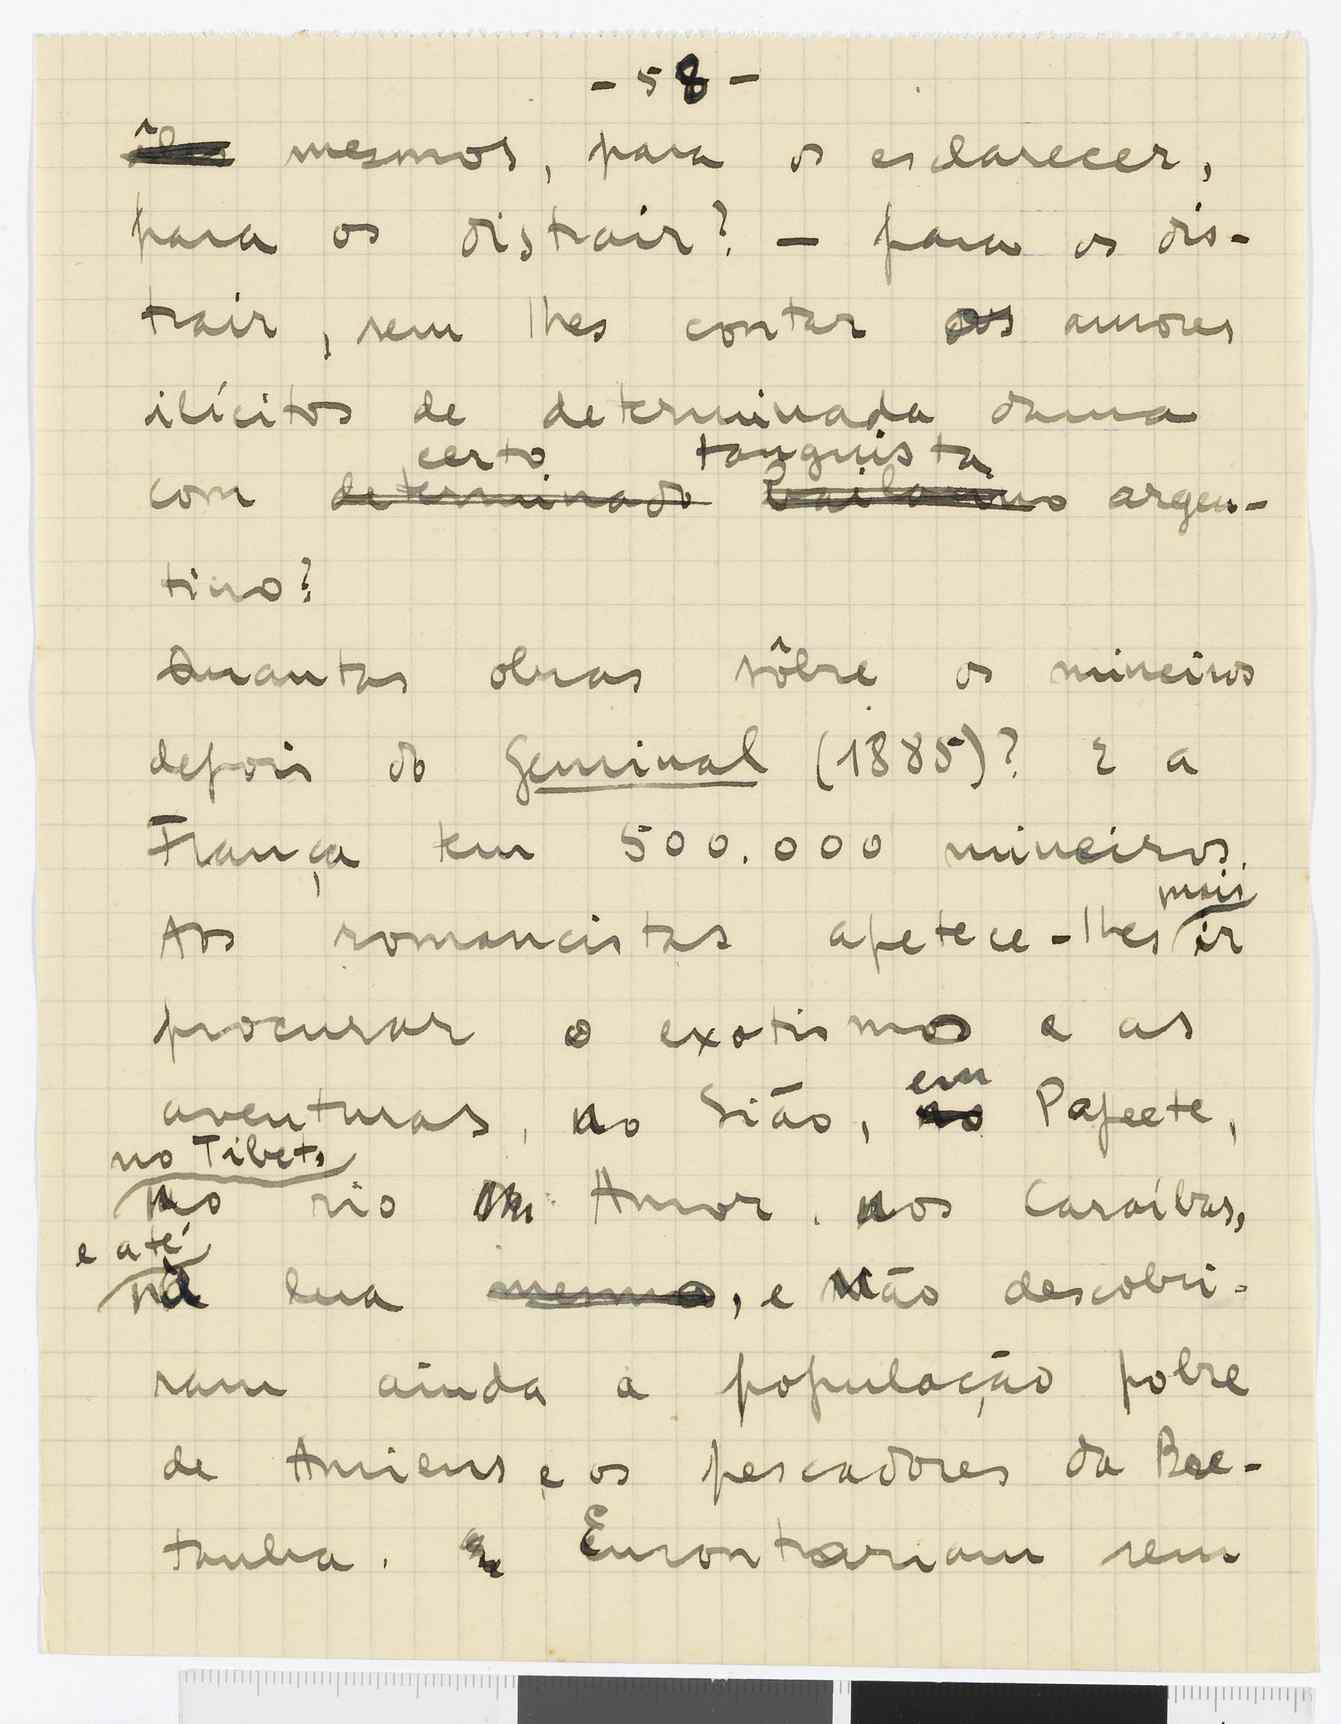 - 58 -
êles mesmos, para os esclarecer,
para os distrair? - para os dis-
trair, sem lhes contar os amores
ilícitos de determinada dama
certo tanguista
com determinado bailarino argen-
tino?
Quantas obras sôbre os mineiros
depois do Germinal (1885)? E a
França tem 500.000 mineiros.
mais
Aos romancistas apetece-lhes ir
procurar o exotismo e as
em
aventuras, no Sião, no Papeete,
no Tibet,
no rio Amor, nos Caraíbas,
e até
na lua mesmo, e não descobri-
ram ainda a população pobre
de Amiens e os pescadores da Bre-
tanha. Encontrariam sem